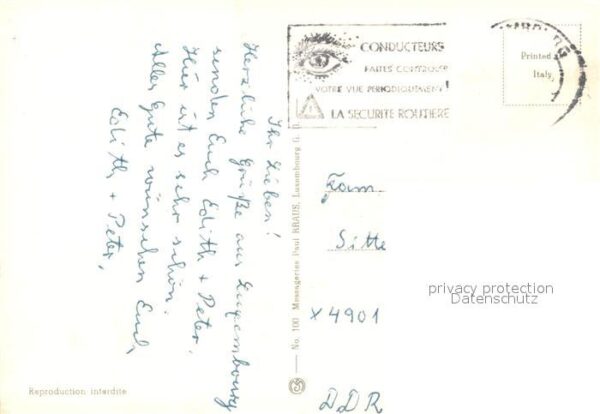 Ihr Lieben!
Herzliche Grüße aus Luxembourg
senden Euch Edith + Peter.
Hier ist es sehr schön.
Alles Gute wünschen Euch
Edith + Peter.
Reproduction interdite
No. 100 Messageries Paul KRAUS, Luxembourg G. D.
CONDUCTEURS
FAITES CONTROLER
VOTRE VUE PERIODIQUEMENT!
LA SECURITE ROUTIERE
Printed
Italy
Fam.
Sitte
privacy protection
Datenschutz
X 4901
DDR